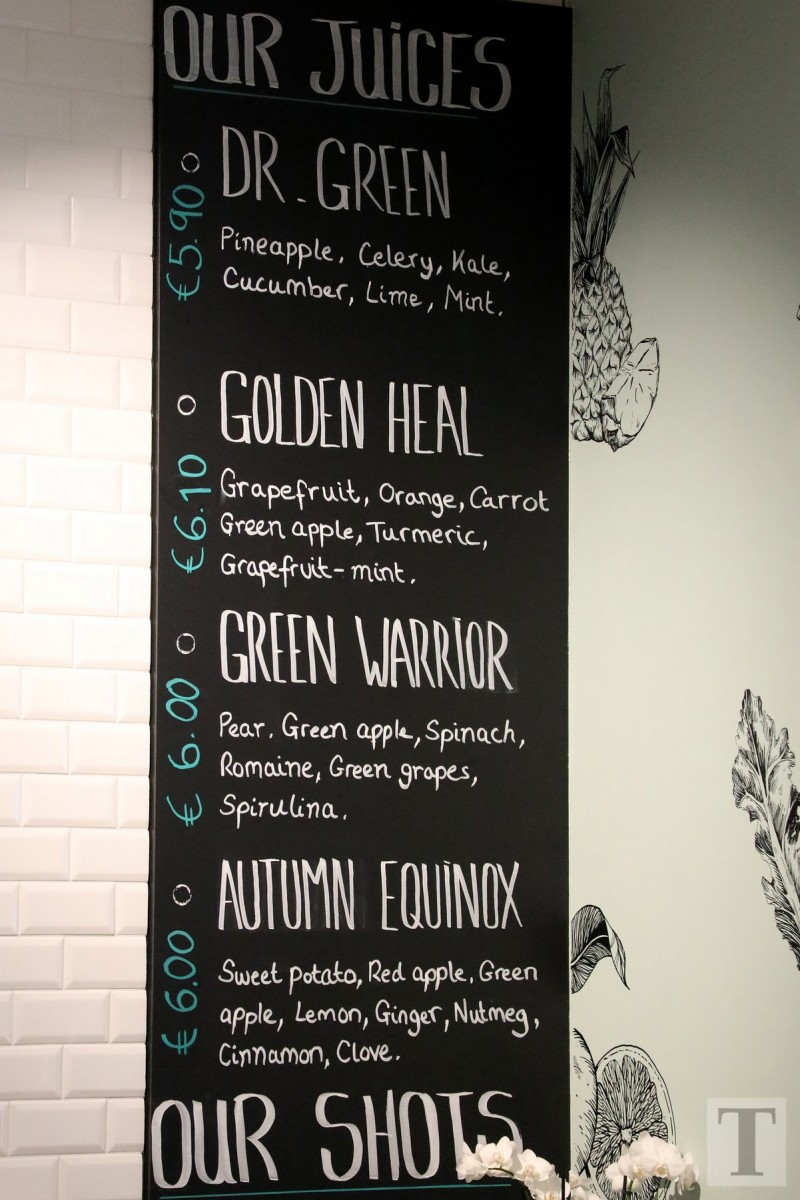 OUR JUiCES
DR. GREEN
€5.90
Pineapple, Celery, Kale,
Cucumber, Lime, Mint.
GOLDEN HEAL
€6.10
Grapefruit, Orange, Carrot
Green apple, Turmeric,
Grapefruit-mint.
GREEN WARRiOR
€ 6.00
Pear, Green apple, Spinach,
Romaine, Green grapes,
Spirulina.
AUTUMN EQUiNOX
€6.00
Sweet potato, Red apple, Green
apple, Lemon, Ginger, Nutmeg,
Cinnamon, Clove.
OUR SHOTS
T